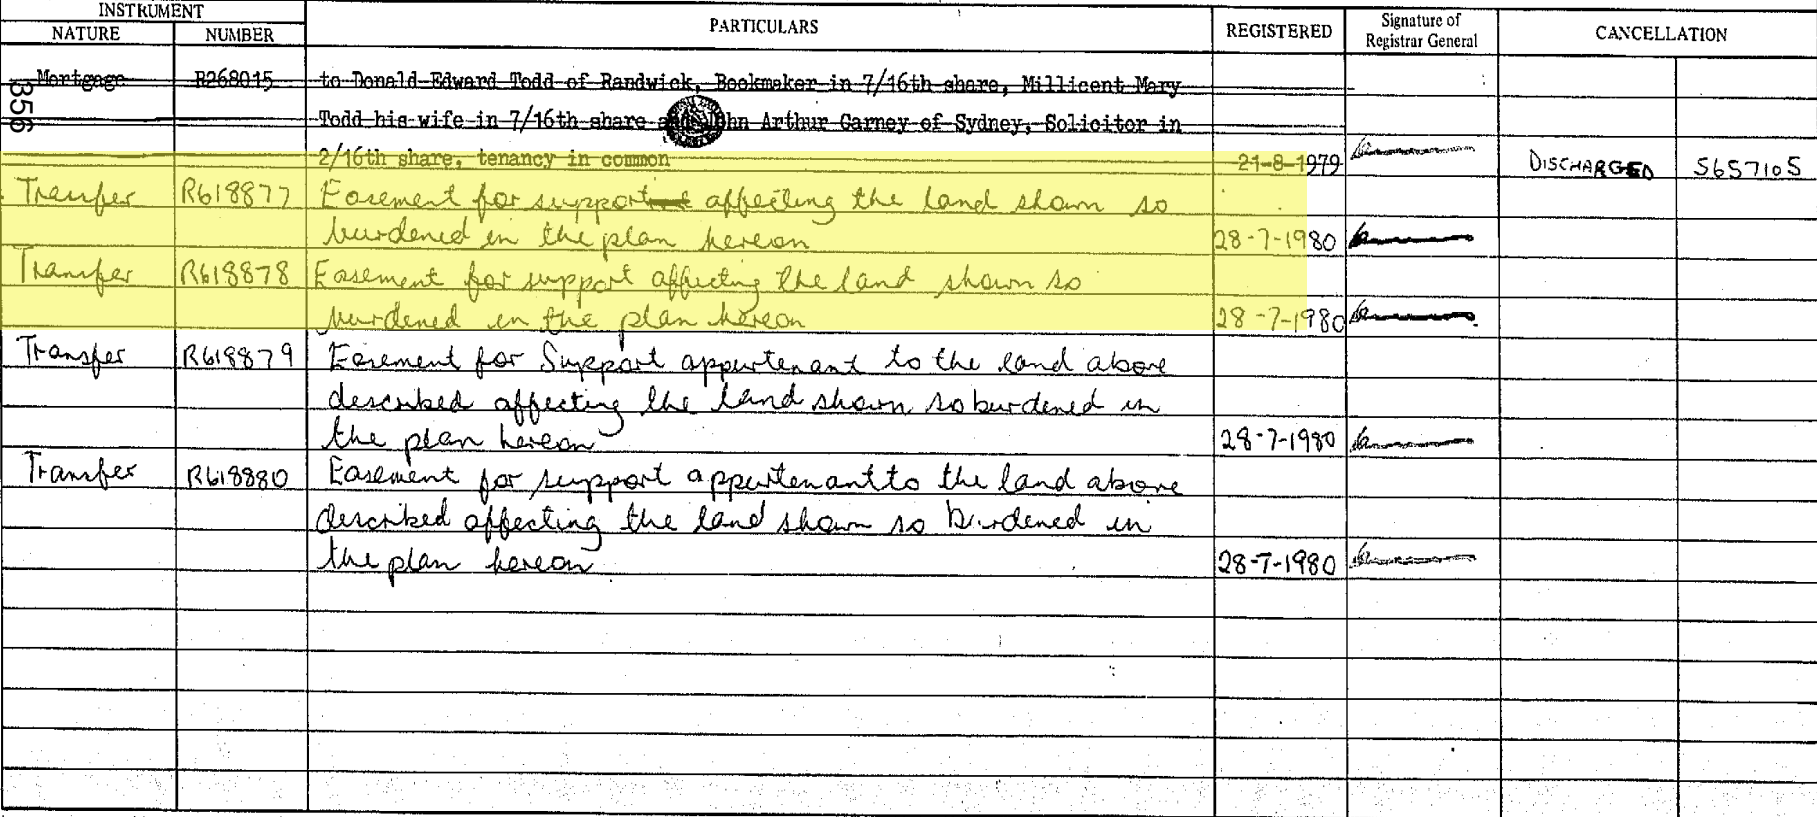 INSTRUMENT
NATURE NUMBER PARTICULARS REGISTERED Signature of Registrar General CANCELLATION
356
Mortgage R268015 to Donald Edward Todd of Randwick, Bookmaker in 7/16th share, Millicent Mary
Todd his wife in 7/16th share and John Arthur Garney of Sydney, Solicitor in
2/16th share, tenancy in common 21-8-1979 DISCHARGED S657105
Transfer R618877 Easement for support affecting the land shown so
burdened in the plan hereon 28-7-1980
Transfer R618878 Easement for support affecting the land shown so
burdened in the plan hereon 28-7-1980
Transfer R618879 Easement for Support appurtenant to the land above
described affecting the land shown so burdened in
the plan hereon 28-7-1980
Transfer R618880 Easement for support appurtenant to the land above
described affecting the land shown so burdened in
the plan hereon 28-7-1980